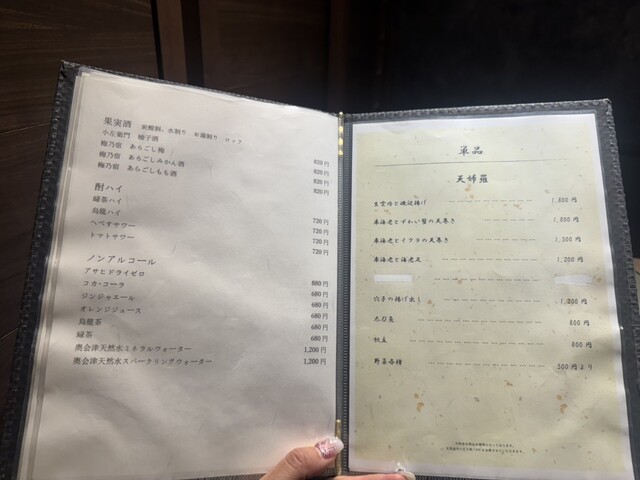 果実酒 炭酸割、水割り お湯割り ロック
小左衛門 柚子酒 820円
梅乃宿 あらごし梅 820円
梅乃宿 あらごしみかん酒 820円
梅乃宿 あらごしもも酒 820円
酎ハイ
緑茶ハイ 720円
烏龍ハイ 720円
へべすサワー 720円
トマトサワー 720円
ノンアルコール
アサヒドライゼロ 880円
コカ・コーラ 680円
ジンジャエール 680円
オレンジジュース 680円
烏龍茶 680円
緑茶 680円
奥会津天然水ミネラルウォーター 1,200円
奥会津天然水スパークリングウォーター 1,200円
単品
天婦羅
生雲丹と磯辺揚げ 1,800円
車海老とずわい蟹の天巻き
車海老とイクラの天巻き 1,500円
車海老と海老足 1,200円
穴子の揚げ出し
太刀魚 800円
帆立 800円
野菜各種 500円より